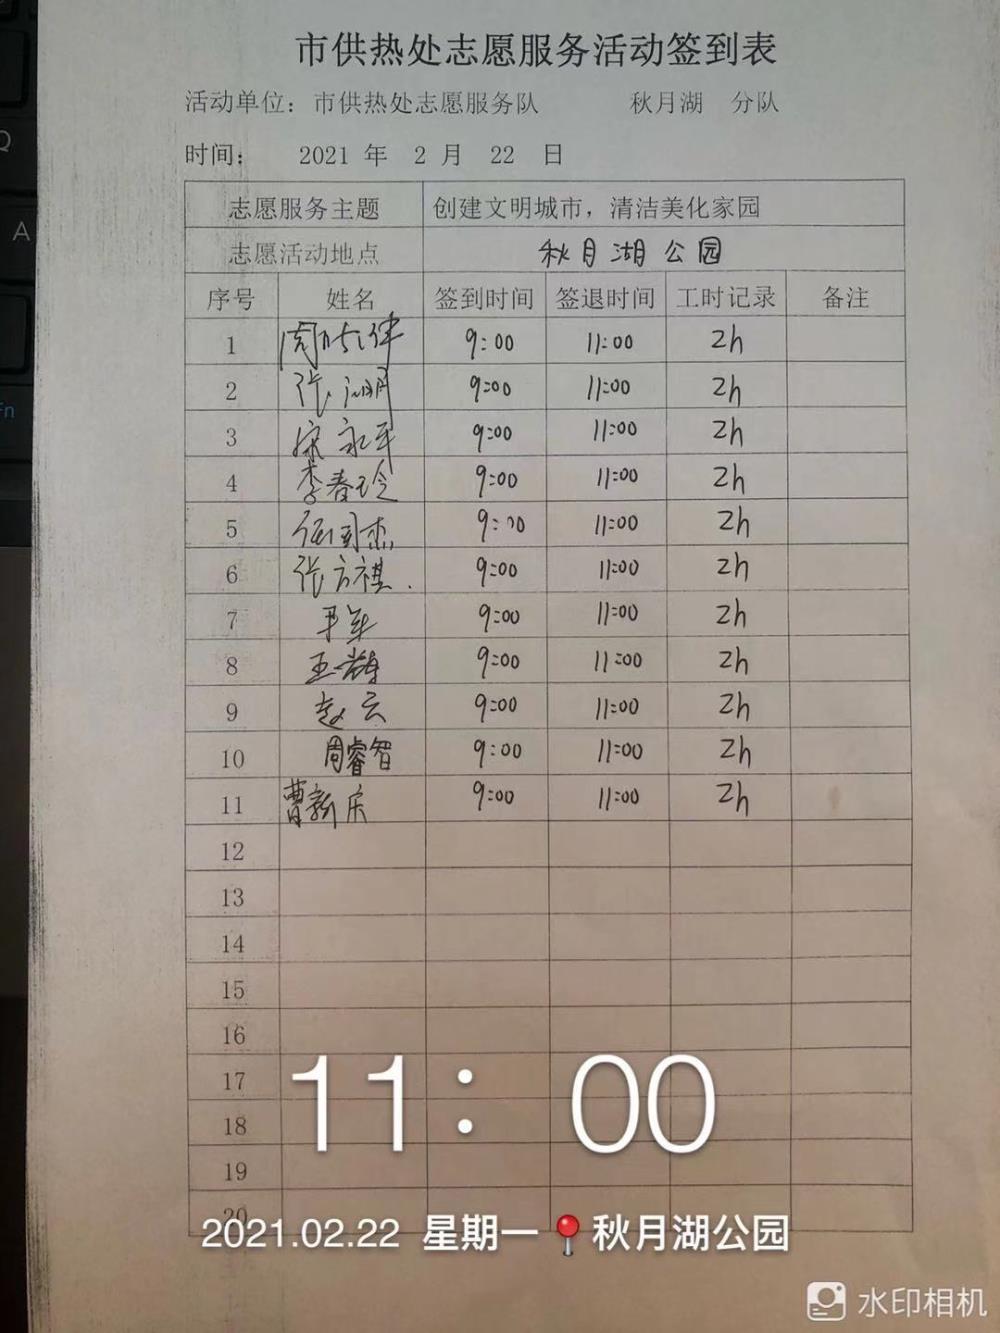 市供热处志愿服务活动签到表
活动单位：市供热处志愿服务队 秋月湖 分队
时间： 2021 年 2 月 22 日
志愿服务主题 创建文明城市，清洁美化家园
志愿活动地点 秋月湖公园
序号 姓名 签到时间 签退时间 工时记录 备注
1 周 9:00 11:00 2h
2 张 9:00 11:00 2h
3 宋永平 9:00 11:00 2h
4 李春玲 9:00 11:00 2h
5 国杰 9:00 11:00 2h
6 张方祺. 9:00 11:00 2h
7 军 9:00 11:00 2h
8 王 9:00 11:00 2h
9 赵云 9:00 11:00 2h
10 周睿智 9:00 11:00 2h
11 曹新 9:00 11:00 2h
12
13
14
15
16
17
18
19
20
11: 00
2021.02.22 星期一 秋月湖公园
水印相机
A
Q
Fn